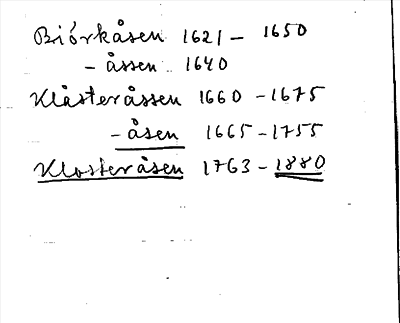 Biórkåsen 1621 - 1650
- åssen .. 1640
Klåsteråssen 1660 - 1675
- åsen 1665 - 1755
Klosteråsen 1763 - 1880